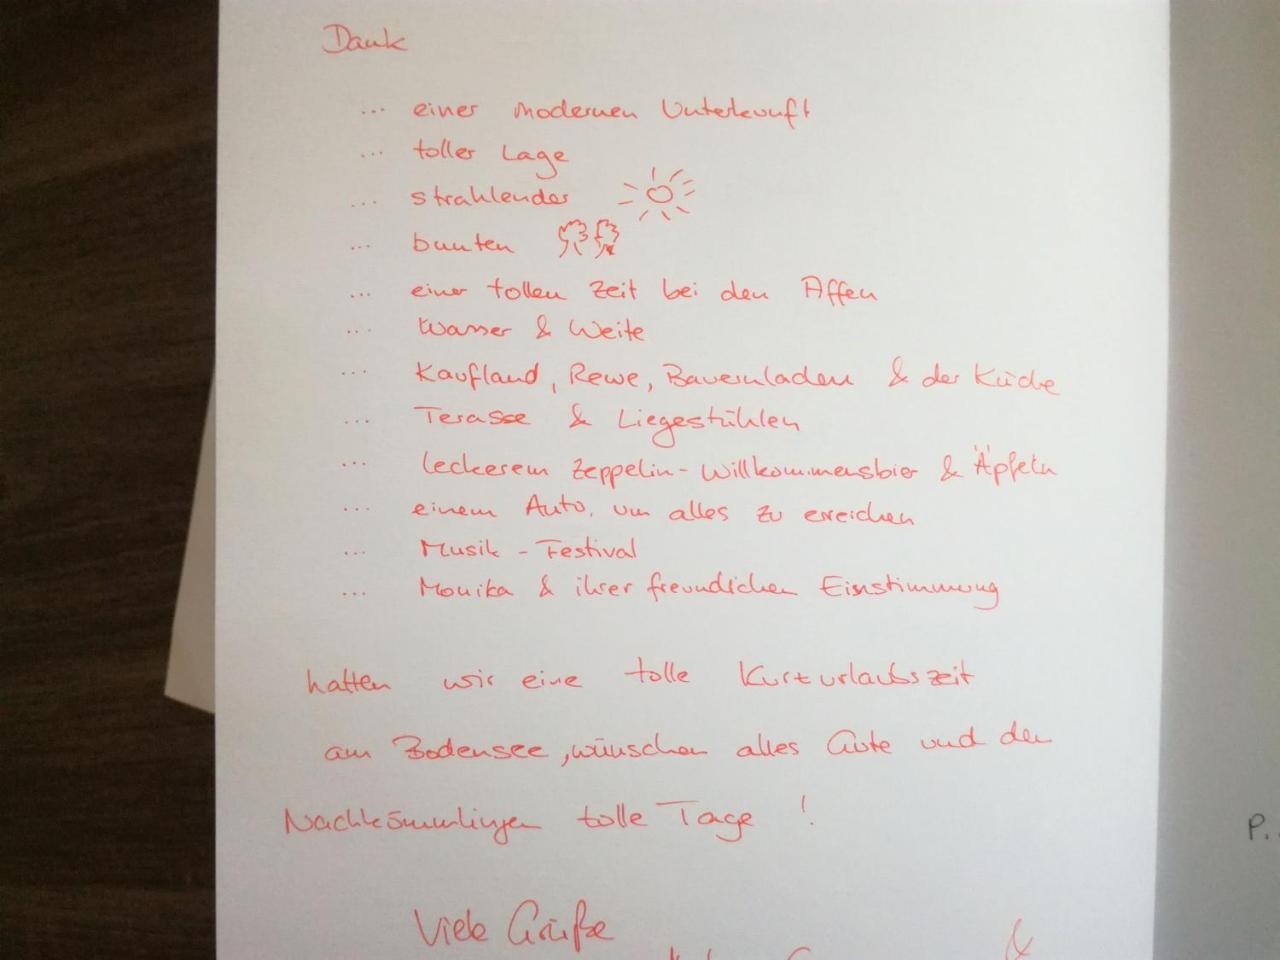 Dank
... einer modernen Unterkunft
... toller Lage
... strahlender
... bunten
... einer tollen Zeit bei den Affen
... Wasser & Weite
... Kaufland, Rewe, Bauernladen & der Küche
... Terasse & Liegestühlen
... leckerem Zeppelin-Willkommensbier & Äpfeln
... einem Auto, um alles zu erreichen
... Musik - Festival
... Monika & ihrer freundlichen Einstimmung
hatten wir eine tolle Kurzurlaubszeit
am Bodensee, wünschen alles Gute und den
Nachkömmlingen tolle Tage !
P.
Viele Grüße
&